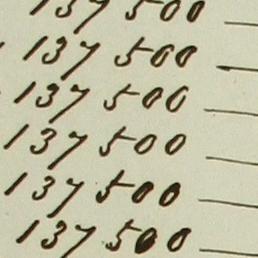 137 500
137 500
137 500
137 500
137 500
137 500